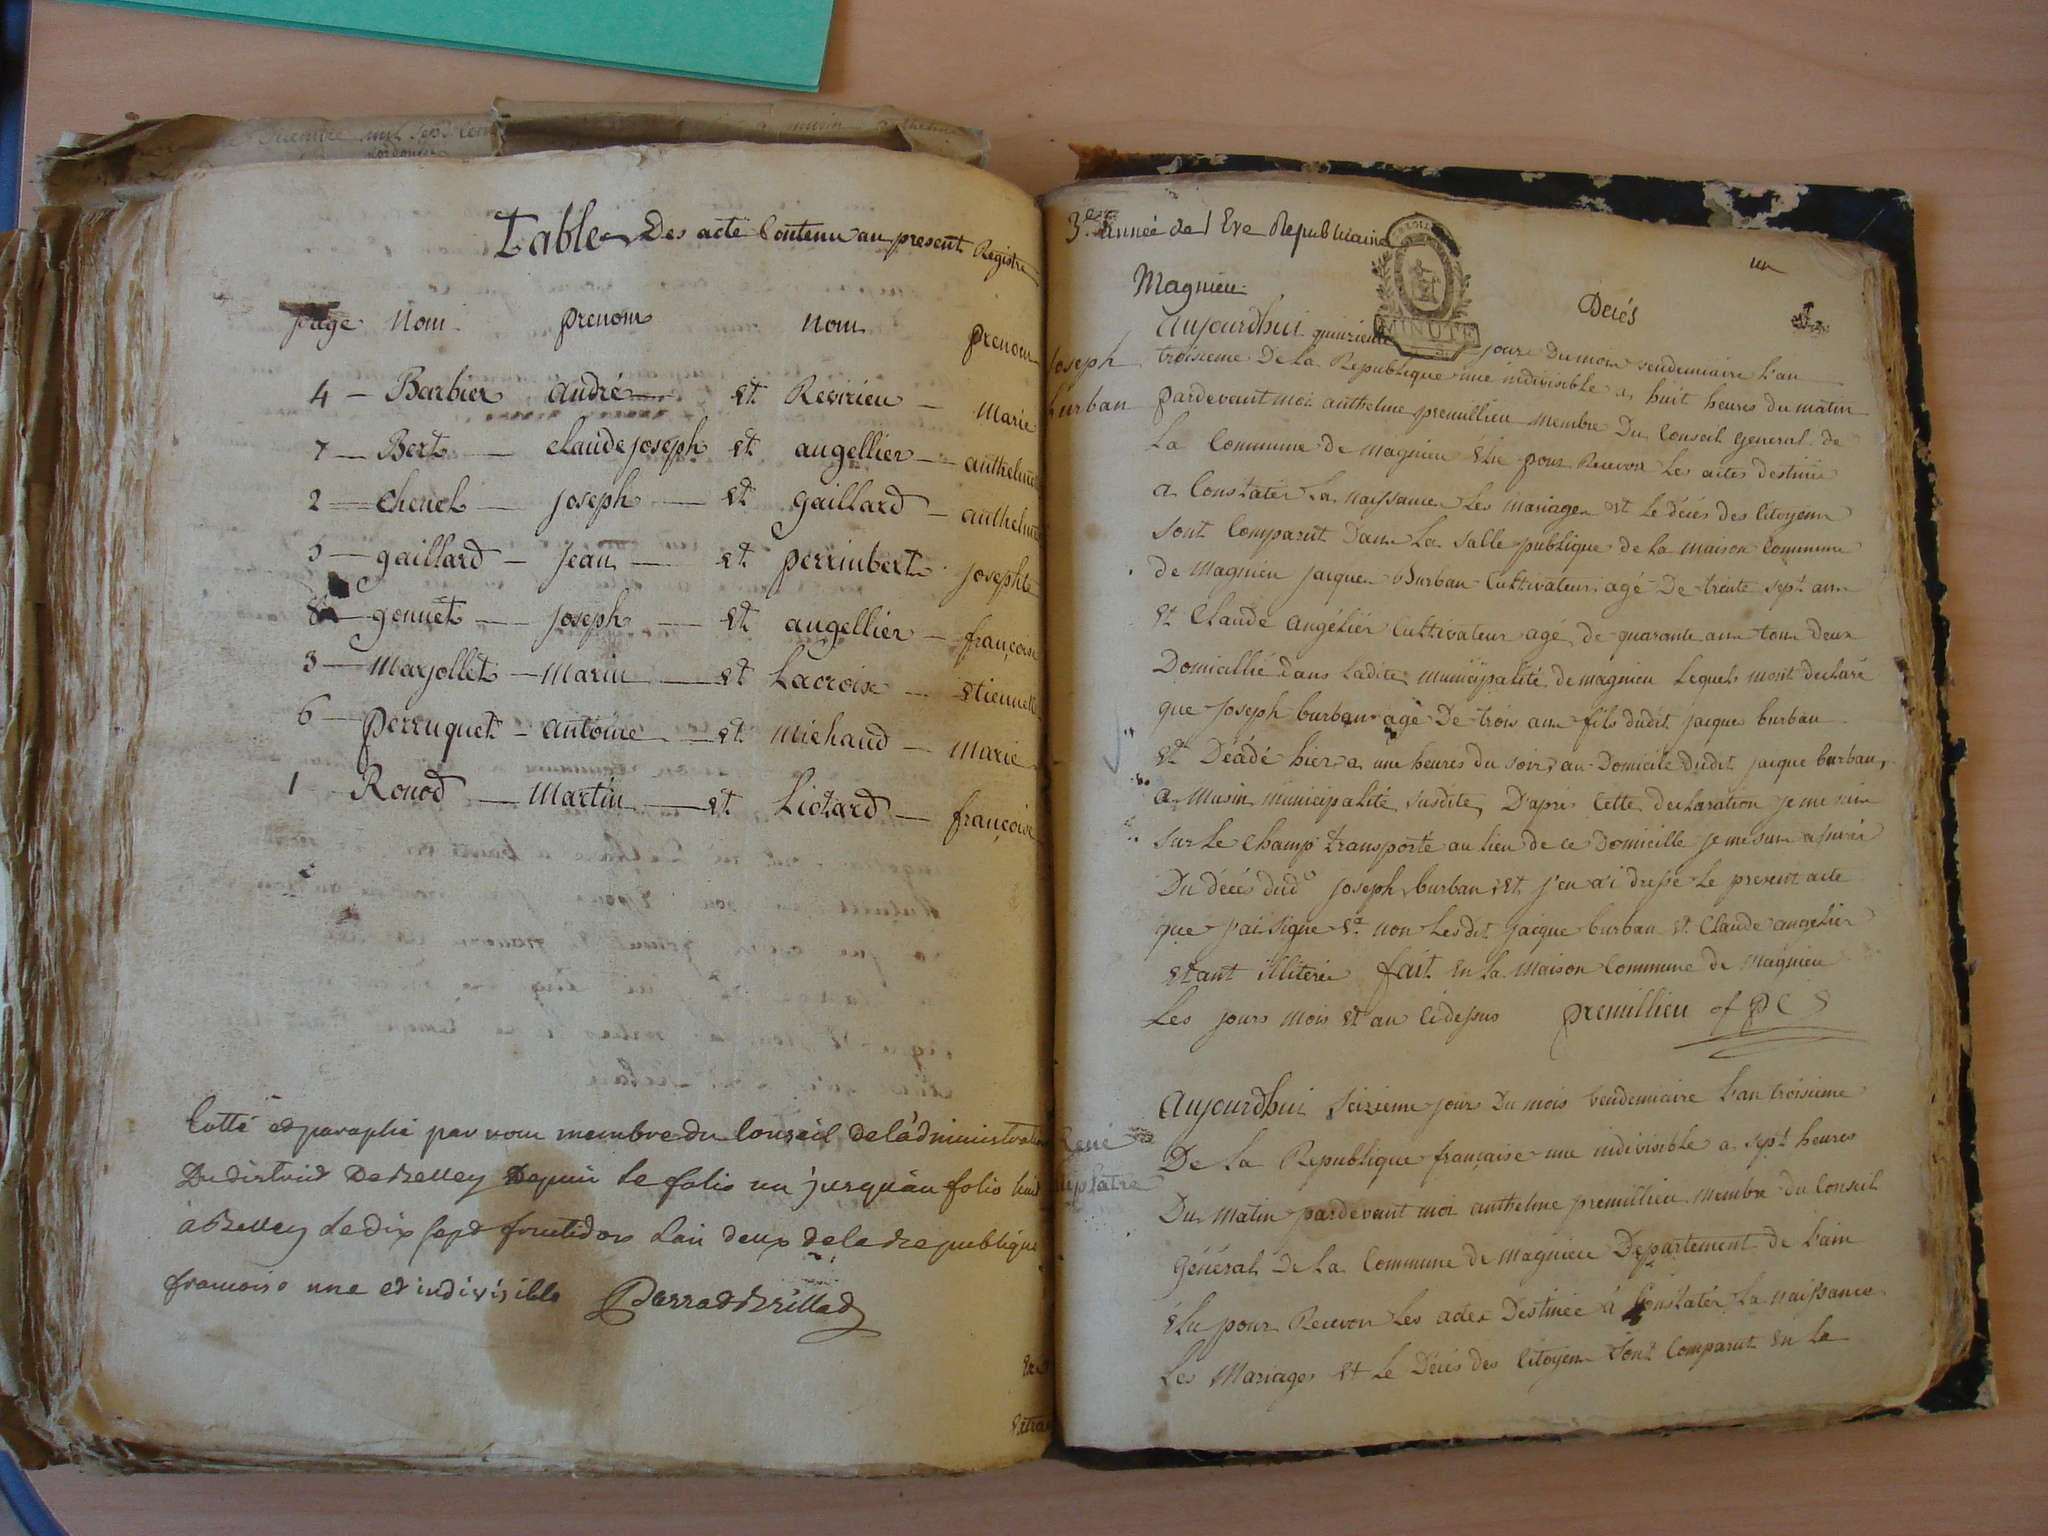 Table Des acte Contenu au present Registre
page Nom prenom Nom prenom
4 - Barbier andré et Revirieu - Marie
7 - Bert - Claude joseph et augellier - anthelme
2 - Chenel - joseph - et gaillard - anthelme
5 - gaillard - jean - et perrinbert josephte
8 - gonnet - joseph - et augellier - françoise
3 - Marjollet - Marin - et Lacroix - Etiennette
6 - perruquet - antoine - et Michaud - Marie
1 Ronod - Martin - et Liotard - françoise
Cotté et paraphé par nous membre du Conseil de l'administration
Du district De Belley Depuis le folio un jusquau folio huit
à Belley le dix sept fructidor l'an deux de la Republique
francoise une et indivisible
3e année de l Ere Republicaine
un
Magnieu
Decés
MINUTE
joseph
burban
aujourdhui quinzieme jour du mois vendemiaire l'an
troisieme De la Republique une indivisible a huit heures du matin
pardevant moi anthelme premillieu membre Du Conseil general de
La Commune de magnieu élu pour Recevoir les actes destiné
a Constater La naissance Les mariages et le décés des Citoyens
sont Comparut Dans La Salle publique de la maison Commune
de Magnieu jacques Burban Cultivateur agé De trente sept ans
et Claude angélier Cultivateur agé de quarante ans tous deux
Domicillié dans ladite municipalité de magnieu lequels mont declaré
que joseph burban agé De trois ans fils dudit jacques burban
et Décédé hier a une heures du soir au Domicile Dudit jacque burban,
a Musin municipalité susdite, D'apres Cette declaration je me suis
sur le Champ transporté au lieu de ce Domicille je me suis assuré
Du décés dud joseph burban et j'en ai dressé Le present acte
que j'ai signe et non lesdit jacque burban et Claude angelier
etant illiteré fait en la Maison Commune de Magnieu
Les jours mois et an ci dessus premillieu of p C
René
Aujourdhui Seizieme jour Du mois Vendemiaire l'an troisieme
De La Republique française une indivisible a sept heures
Du Matin pardevant moi anthelme premillieu Membre du Conseil
Général De La Commune de Magnieu Departement de l'ain
élu pour Recevoir Les actes Destinée à Constater La naissance
Les Mariages et Le Décés des Citoyens sont Comparut En La